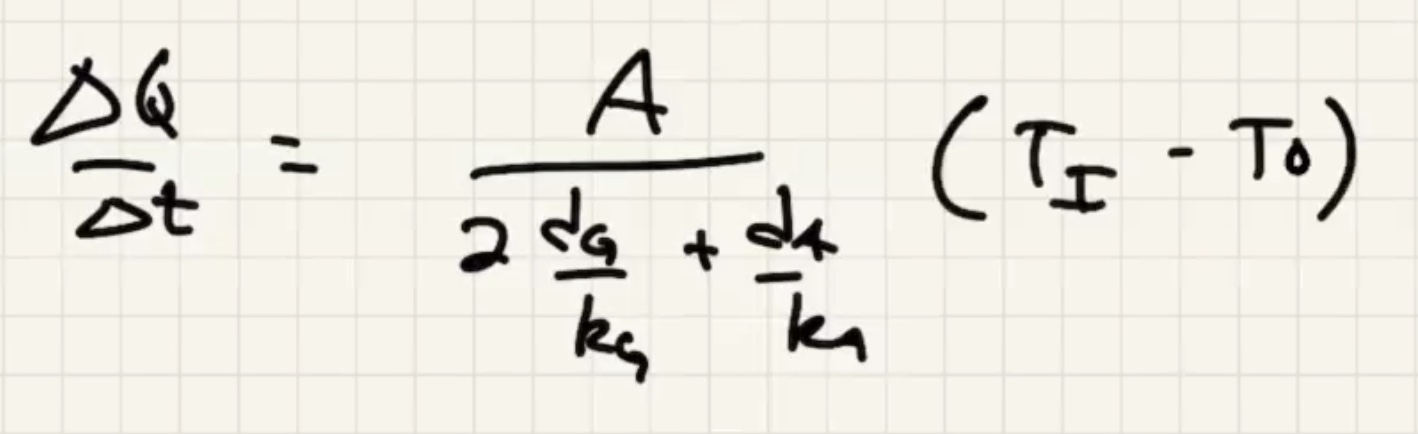 ΔQ/Δt = A/(2 d_G/k_G + d_A/k_A) (T_I - T_O)